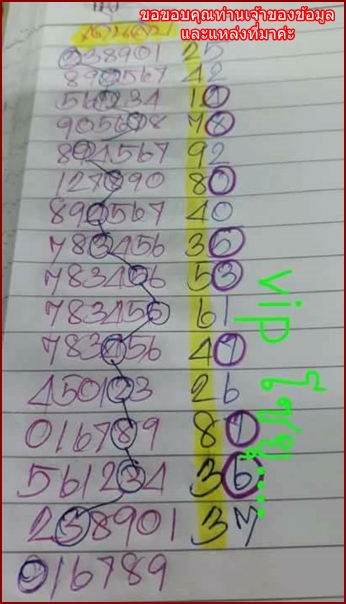 ขอขอบคุณท่านเจ้าของข้อมูล
และแหล่งที่มาค่ะ
038901 25
890567 42
561234 10
905678 78
894567 92
127890 80
890567 40
783456 36
783456 53
783456 61
783456 47
450123 26
016789 87
561234 36
238901 37
016789
vip